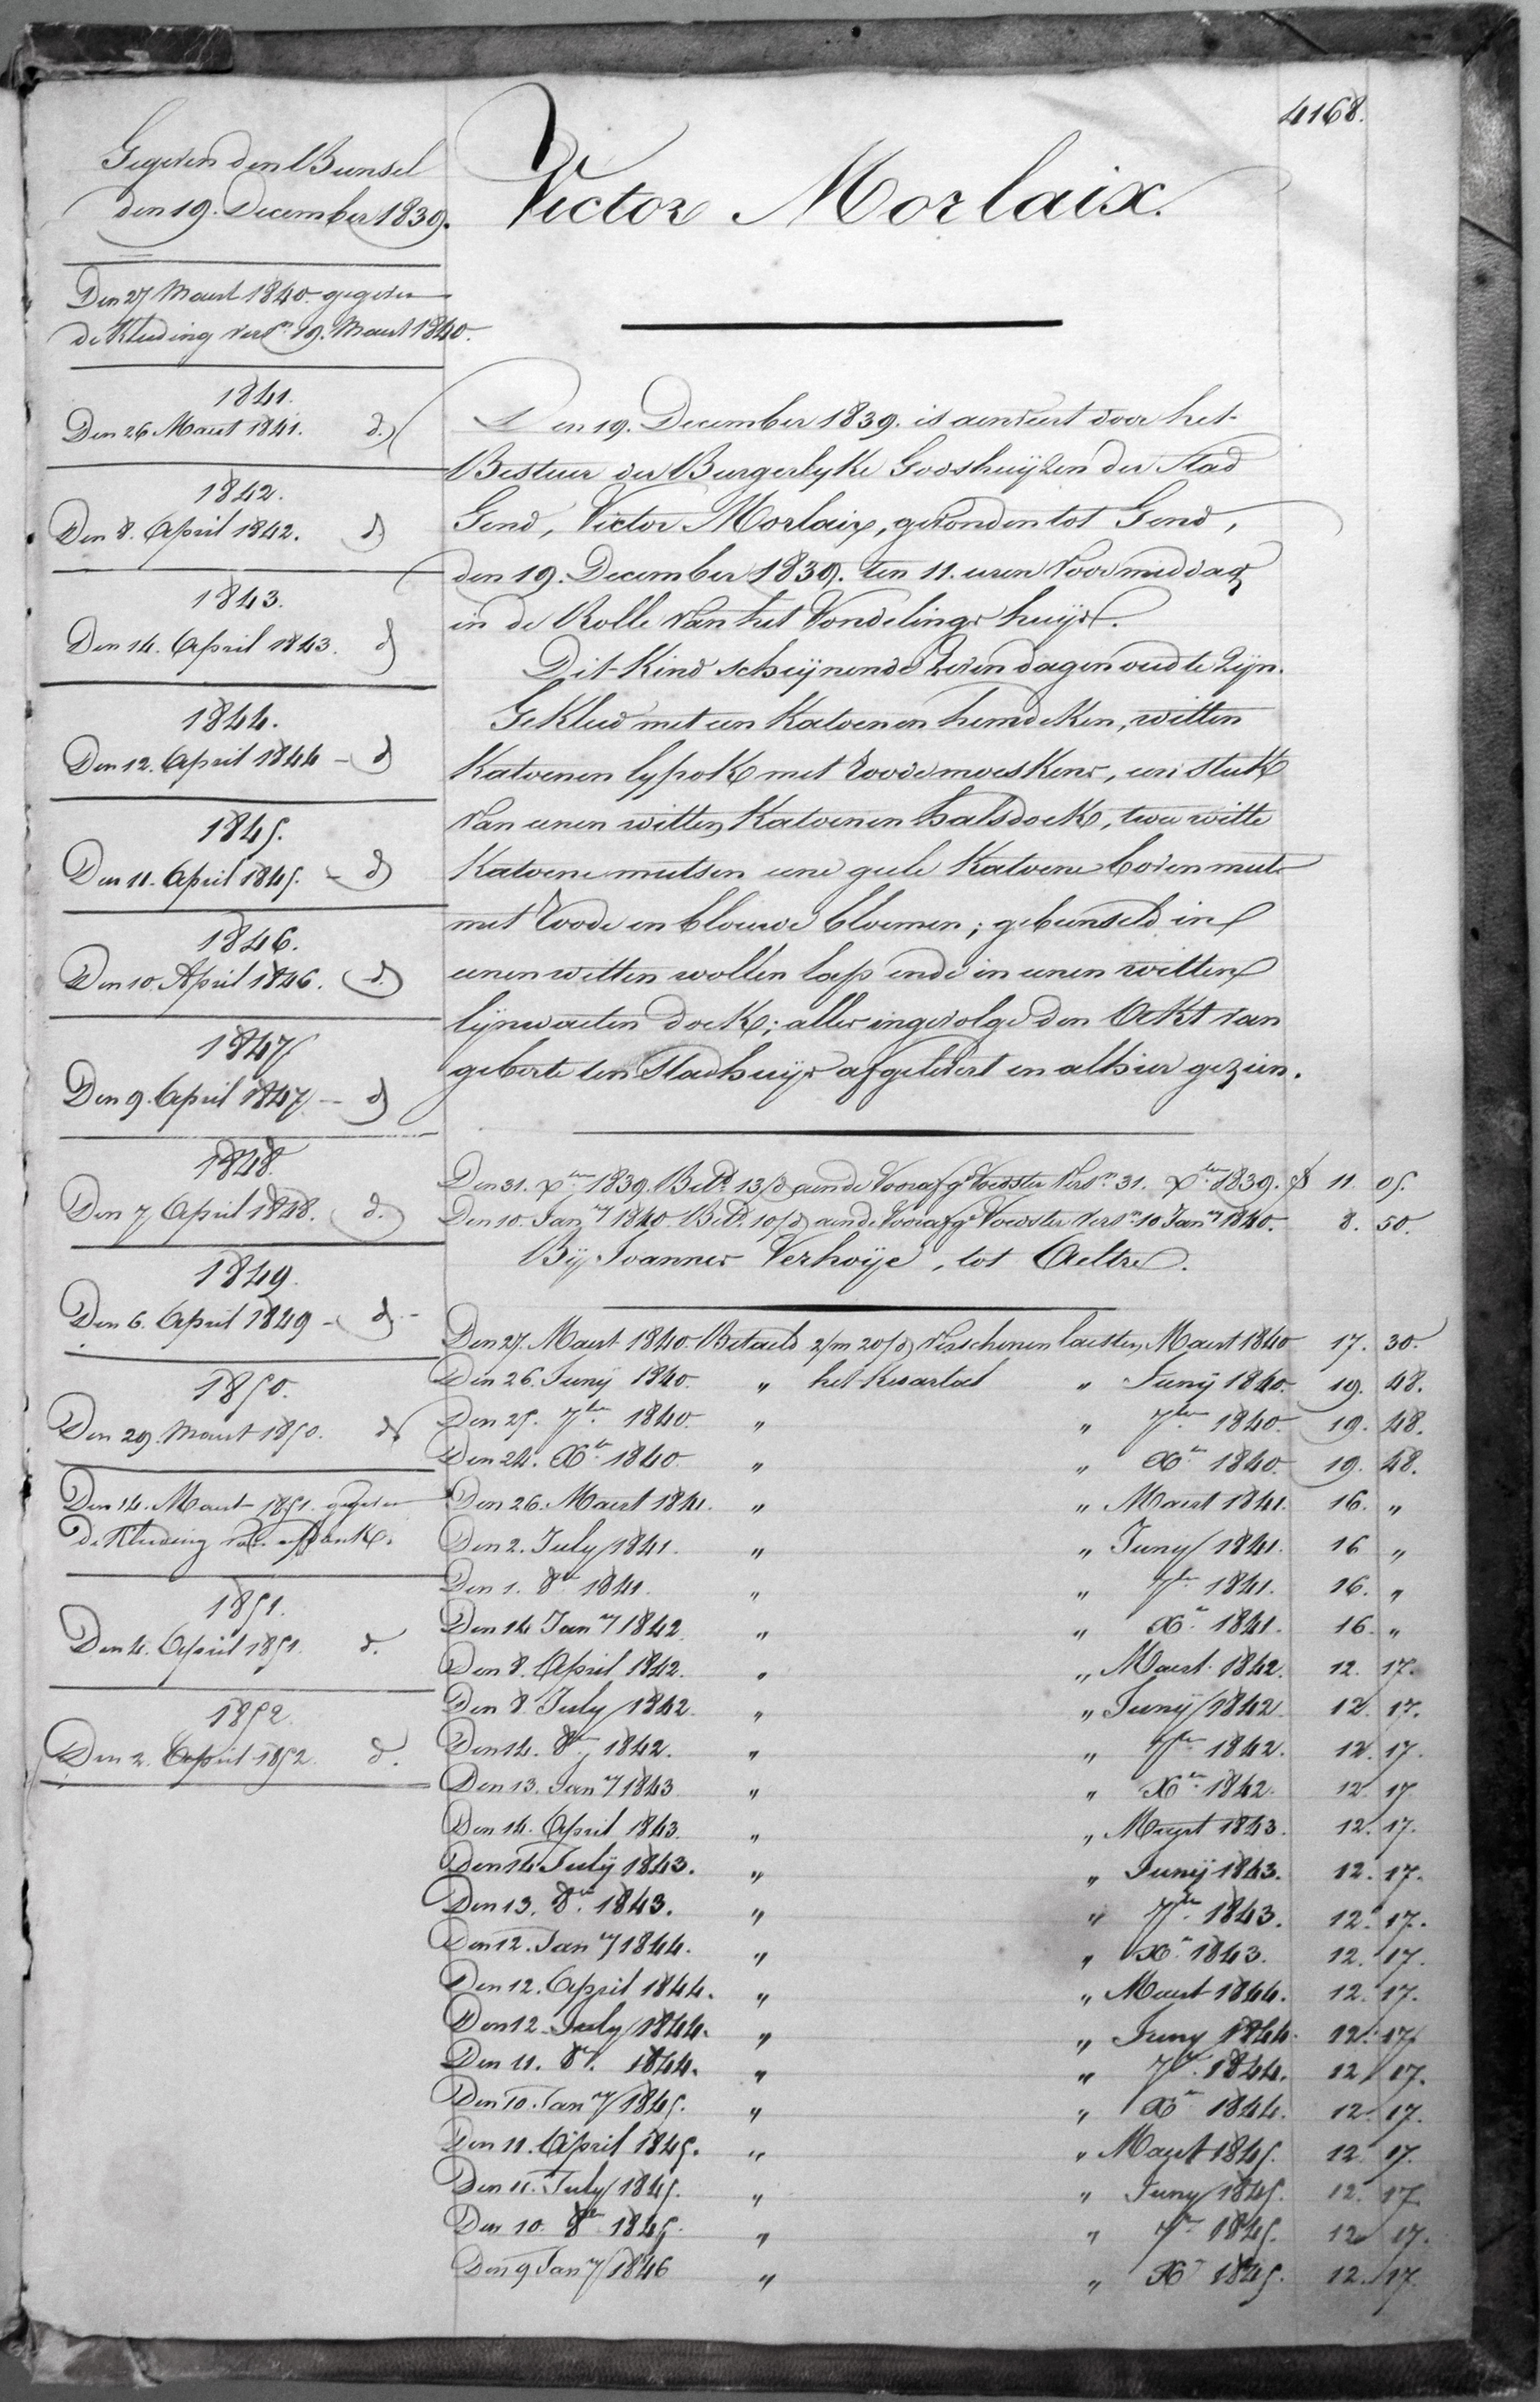 4168.
Victor Morlaix.
Gegeven den Bunsel
den 19. December 1839.
Den 27 Maert 1840. gegeven
de Kleeding versn. 19. Maert 1840.
1841.
Den 26 Maert 1841. d.
1842.
Den 8. April 1842. d
1843.
Den 14. April 1843. d
1844.
Den 12. April 1844 - d
1845.
Den 11. April 1845. - d
1846.
Den 10. April 1846. d.
1847
Den 9. April 1847 - d
1848
Den 7 April 1848. d.
1849.
Den 6. April 1849 - d -
1850.
Den 29. Maert 1850. d
Den 14. Maert 1851. gegeven
de Kleeding
1851.
Den 4. April 1851. d.
1852.
Den 2. April 1852. d.
Den 19. December 1839. is aenveert door het
Bestuer der Burgerlyke Godshuijzen der Stad
Gend, Victor Morlaix, gevonden tot Gend,
den 19. December 1839. ten 11. uren Voormiddag
in de Rolle van het Vondelingshuijs.
Dit Kind scheijnende Zeven dagen oud te Zijn.
Gekleed met een Katoenen hemdeken, witten
Katoenen lyfrok met roode moeskens, een stuk
van eenen witten Katoenen halsdoek, twee witte
Katoene mutsen eene geele Katoene bovenmuts
met roode en blouwe bloemen; gebunseld in
eenen witten wollen lap ende in eenen witten
lijnwaeten doek; alles ingevolge den Akt van
geborte ten Stadhuijs afgelevert en alhier gezien.
Den 31. Xber 1839. Betd. 13/d aen de Voorafge. Voedster Versn. 31. Xber 1839. f 11 05.
Den 10. Jany 1840. Betd. 10/d aen de Voorafge. Voedster Versn. 10 Jany 1840. 8. 50.
Bij Joannes Verhoije, tot Aeltre.
Den 27. Maert 1840. Betaeld 2/m 20/d Verschenen laesten Maert 1840 17. 30.
Den 26. Junij 1840. " het Kwartael " Junij 1840. 19. 48.
Den 25. 7ber. 1840. " " 7ber. 1840. 19. 48.
Den 24. Xr. 1840. " " Xr. 1840. 19. 48.
Den 26. Maert 1841. " " Maert 1841. 16. "
Den 2. July 1841. " " Juny 1841. 16 "
Den 1. 8r. 1841. " " 7r. 1841. 16. "
Den 14 Jany 1842. " " Xr. 1841. 16. "
Den 8. April 1842. " " Maert 1842. 12. 17.
Den 8. July 1842. " " Junij 1842. 12. 17.
Den 14. 8r. 1842. " " 7ber 1842. 12. 17.
Den 13. Jany 1843 " " Xr. 1842. 12. 17
Den 14. April 1843. " " Maert 1843. 12. 17.
Den 14 Julij 1843. " " Junij 1843. 12. 17.
Den 13. 8r. 1843. " " 7ber. 1843. 12. 17.
Den 12. Jany 1844. " " Xr. 1843. 12. 17.
Den 12. April 1844. " " Maert 1844. 12. 17.
Den 12 July 1844. " " Juny 1844. 12. 17
Den 11. 8r. 1844. " " 7r. 1844. 12 17.
Den 10. Jany 1845. " " Xr. 1844. 12. 17.
Den 11. April 1845. " " Maert 1845. 12 17.
Den 11. July 1845. " " Juny 1845. 12. 17
Den 10. 8r. 1845. " " 7r. 1845. 12 17.
Den 9 Jany 1846 " " Xr 1845. 12. 17